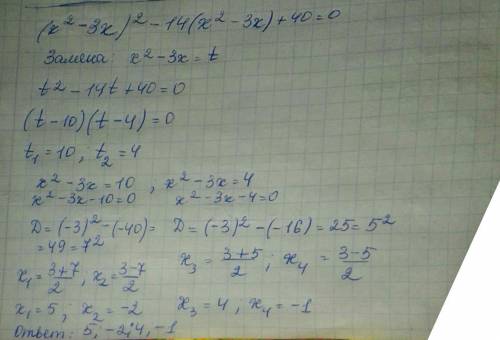 (x² - 3x)² - 14(x² - 3x) + 40 = 0
Замена: x² - 3x = t
t² - 14t + 40 = 0
(t - 10)(t - 4) = 0
t₁ = 10 ; t₂ = 4
x² - 3x = 10 , x² - 3x = 4
x² - 3x - 10 = 0 x² - 3x - 4 = 0
D = (-3)² - (-40) = D = (-3)² - (-16) = 25 = 5²
= 49 = 7²
x₁ = (3+7)/2 , x₂ = (3-7)/2 x₃ = (3+5)/2 ; x₄ = (3-5)/2
x₁ = 5 ; x₂ = -2 x₃ = 4 , x₄ = -1
Ответ: 5, -2; 4, -1